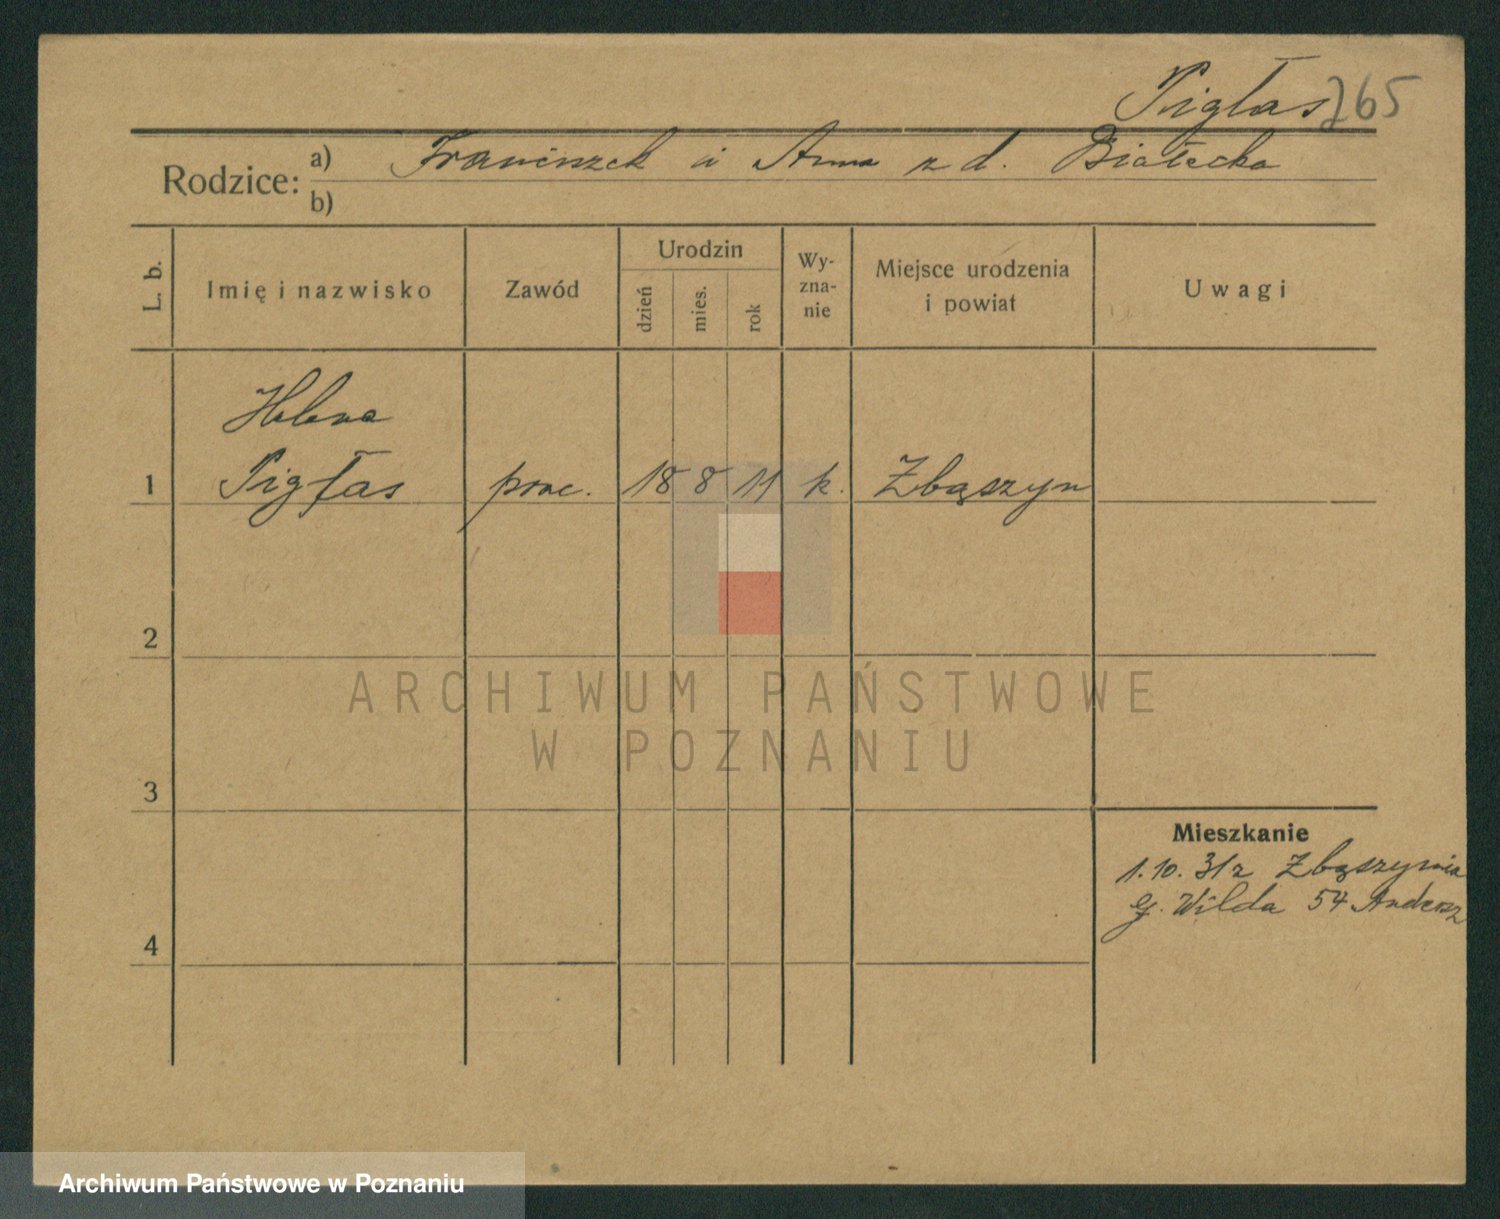 Pigłas 265
Rodzice:
a) Franciszek i Anna z d. Białecka
b)
L. b.
Imię i nazwisko
Zawód
Urodzin
dzień
mies.
rok
Wy-
zna-
nie
Miejsce urodzenia
i powiat
Uwagi
Helena
1 Pigłas prac. 18 8 11 k. Zbąszyn
2
3
4
Mieszkanie
1.10.31 z Zbąszynia
G. Wilda 54 Andersz
ARCHIWUM PAŃSTWOWE
W POZNANIU
Archiwum Państwowe w Poznaniu